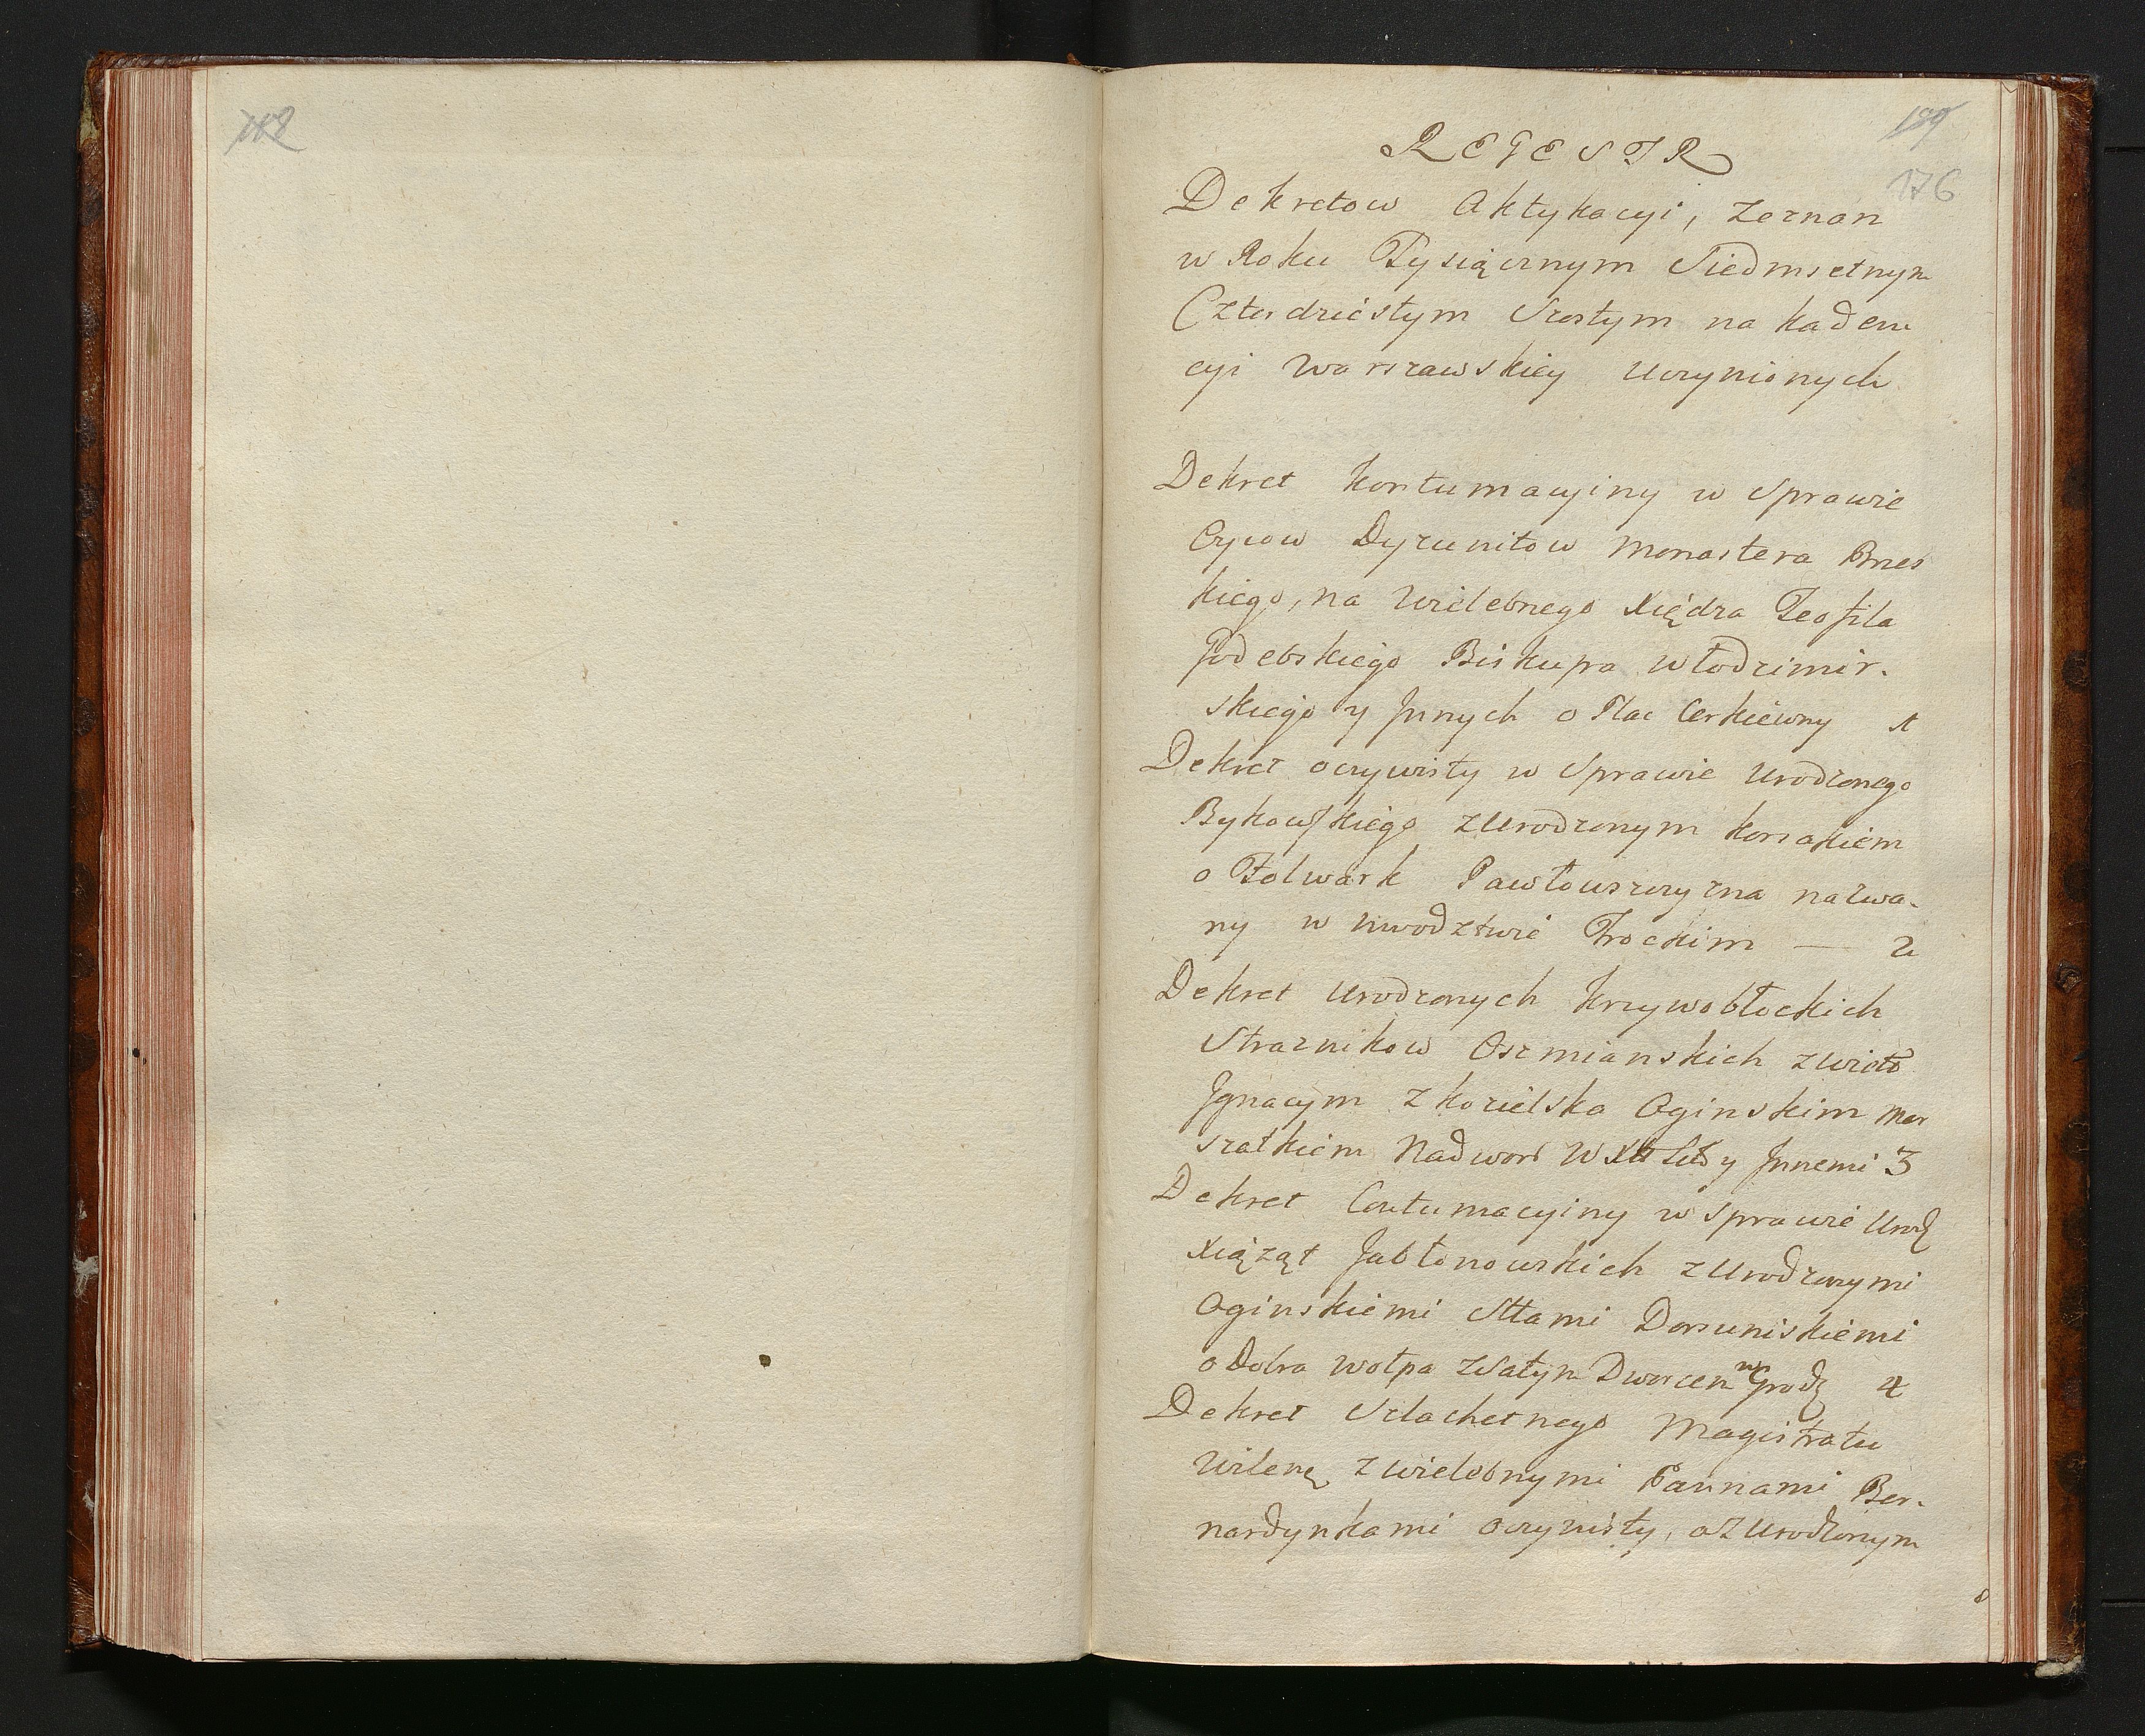 189
176
REGESTR
Dekretow Aktykacyi, Zeznan
w Roku Tysiącznym Siedmsetnym
Czterdziestym Szostym na kaden
cyi Warszawskiey Uczynionych
Dekret kontumacyiny w Sprawie
Oycow Dyzunitow Monastera Brzes
kiego, na Wielebnego Xiędza Teofila
Godebskiego Biskupa Włodzimir-
skiego y Jnnych o Plac Cerkiewny 1
Dekret oczywisty w Sprawie Urodzonego
Bykowskiego z Urodzonym Korsakiem
o Folwark Pawłowszczyzna nazwa-
ny w Wwodztwie Trockim — 2
Dekret Urodzonych Krzywobłockich
Straznikow Oszmianskich z Wielo
Jgnacym z Kozielska Oginskim Mar
szałkiem Nadwor W X Litt y Jnnemi 3
Dekret Contumacyiny w Sprawie Urodz
Xiąząt Jabłonowskich z Urodzonymi
Oginskiemi Sttami Dorsuniskiemi
o Dobra Wołpa Zdatyn Dworcen w Grodz 4
Dekret Szlachetnego Magistratu
Wilenę z Wielebnymi Pannami Ber-
nardynkami oczywisty, a z Urodzonym